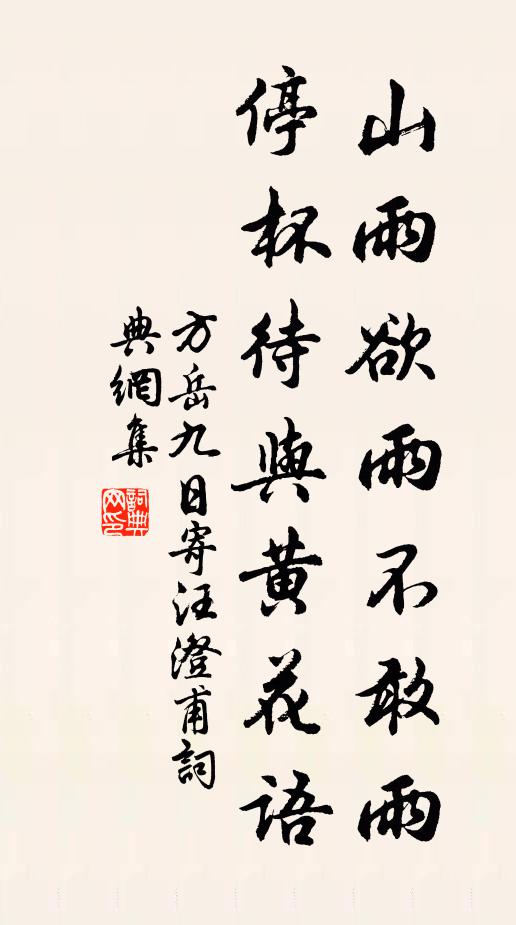 山雨欲雨不敢雨
停杯待與黄花语
方岳九日寄汪澄甫詞
典網集
詞典
网印